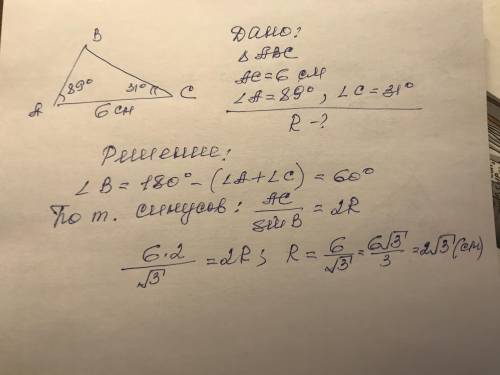 B
89°
31°
A
C
6 см
Дано:
Δ ABC
AC=6 см
∠A=89°, ∠C=31°
R-?
Решение:
∠B=180°-(∠A+∠C)=60°
По т. синусов: AC/sinB = 2R
6·2/√3 = 2R; R = 6/√3 = 6√3/3 = 2√3 (см)